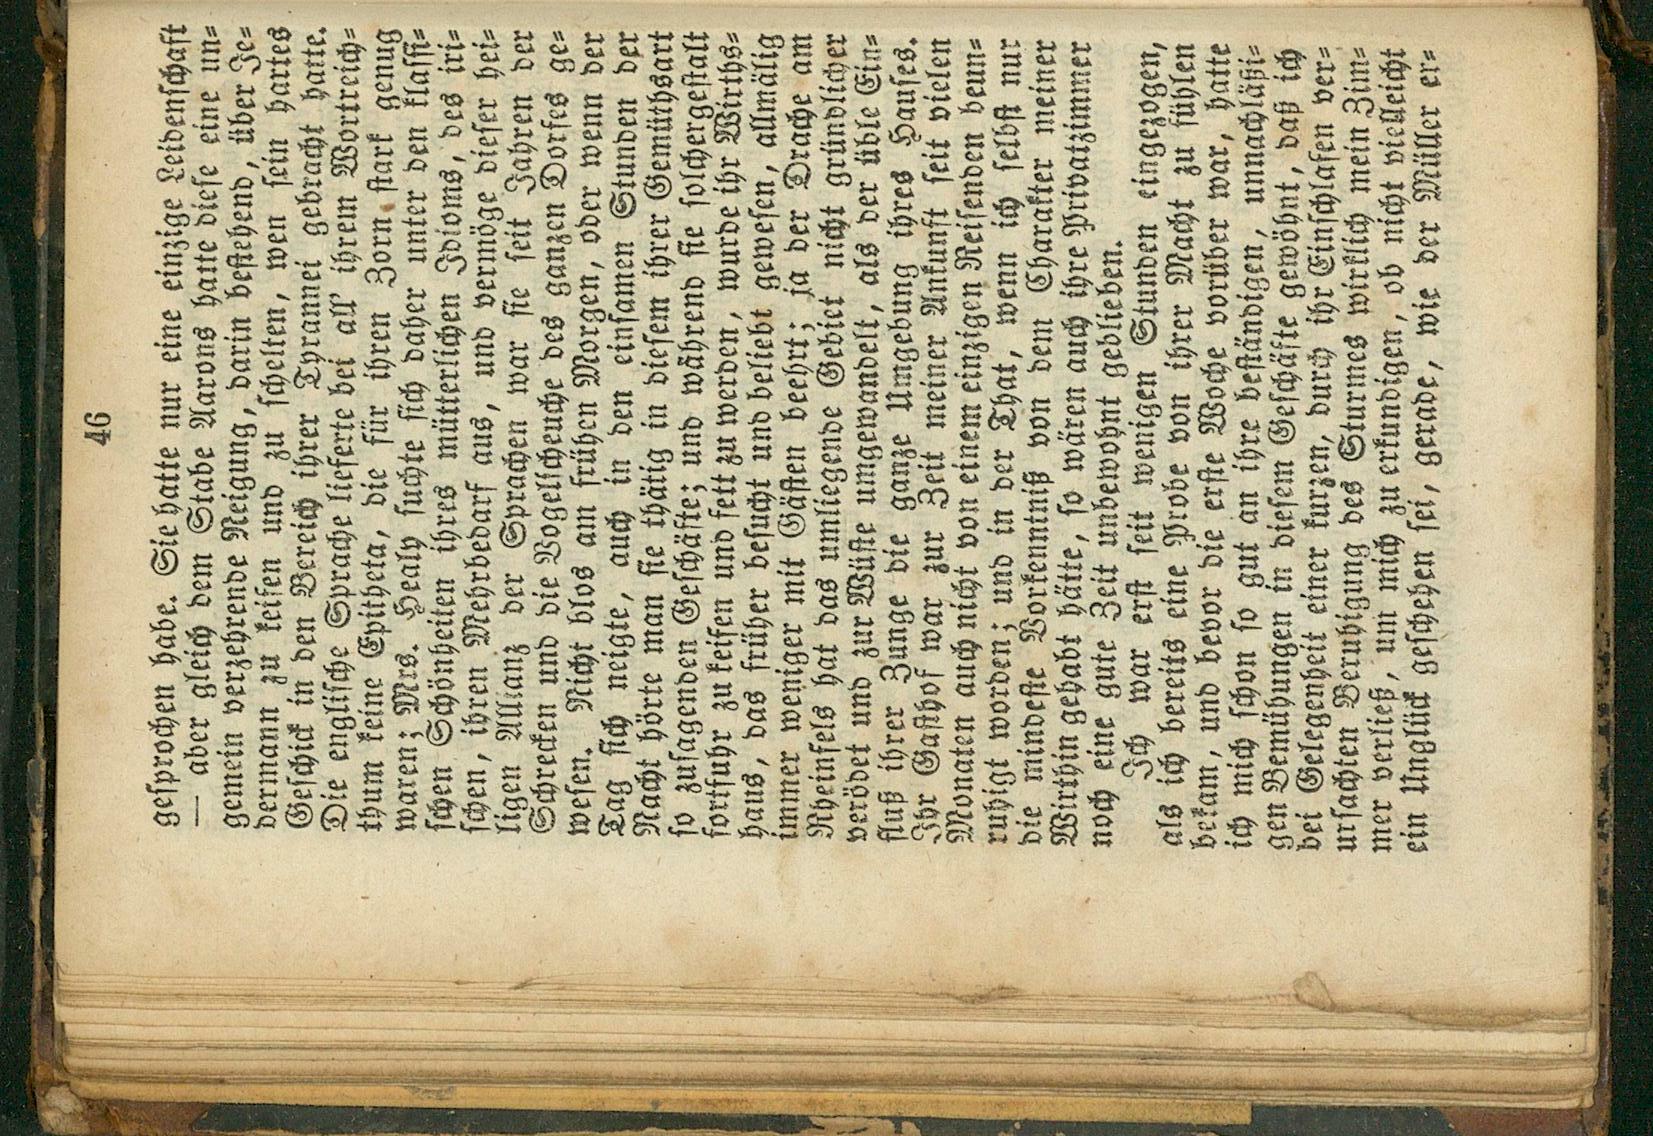 46
gesprochen habe. Sie hatte nur eine einzige Leidenschaft
— aber gleich dem Stabe Aarons hatte diese eine un-
gemein verzehrende Neigung, darin bestehend, über Je-
dermann zu keifen und zu schelten, wen sein hartes
Geschick in den Bereich ihrer Tyrannei gebracht hatte.
Die englische Sprache lieferte bei all' ihrem Wortreich-
thum keine Epitheta, die für ihren Zorn stark genug
waren; Mrs. Healy suchte sich daher unter den klassi-
schen Schönheiten ihres mütterlichen Idioms, des iri-
schen, ihren Mehrbedarf aus, und vermöge dieser hei-
ligen Allianz der Sprachen war sie seit Jahren der
Schrecken und die Vogelscheuche des ganzen Dorfes ge-
wesen. Nicht blos am frühen Morgen, oder wenn der
Tag sich neigte, auch in den einsamen Stunden der
Nacht hörte man sie thätig in diesem ihrer Gemüthsart
so zusagenden Geschäfte; und während sie solchergestalt
fortfuhr zu keifen und fett zu werden, wurde ihr Wirths-
haus, das früher besucht und beliebt gewesen, allmälig
immer weniger mit Gästen beehrt; ja der Drache am
Rheinfels hat das umliegende Gebiet nicht gründlicher
verödet und zur Wüste umgewandelt, als der üble Ein-
fluß ihrer Zunge die ganze Umgebung ihres Hauses.
Ihr Gasthof war zur Zeit meiner Ankunft seit vielen
Monaten auch nicht von einem einzigen Reisenden beun-
ruhigt worden; und in der That, wenn ich selbst nur
die mindeste Vorkenntniß von dem Charakter meiner
Wirthin gehabt hätte, so wären auch ihre Privatzimmer
noch eine gute Zeit unbewohnt geblieben.
Ich war erst seit wenigen Stunden eingezogen,
als ich bereits eine Probe von ihrer Macht zu fühlen
bekam, und bevor die erste Woche vorüber war, hatte
ich mich schon so gut an ihre beständigen, unnachläßi-
gen Bemühungen in diesem Geschäfte gewöhnt, daß ich
bei Gelegenheit einer kurzen, durch ihr Einschlafen ver-
ursachten Beruhigung des Sturmes wirklich mein Zim-
mer verließ, um mich zu erkundigen, ob nicht vielleicht
ein Unglück geschehen sei, gerade, wie der Müller er-